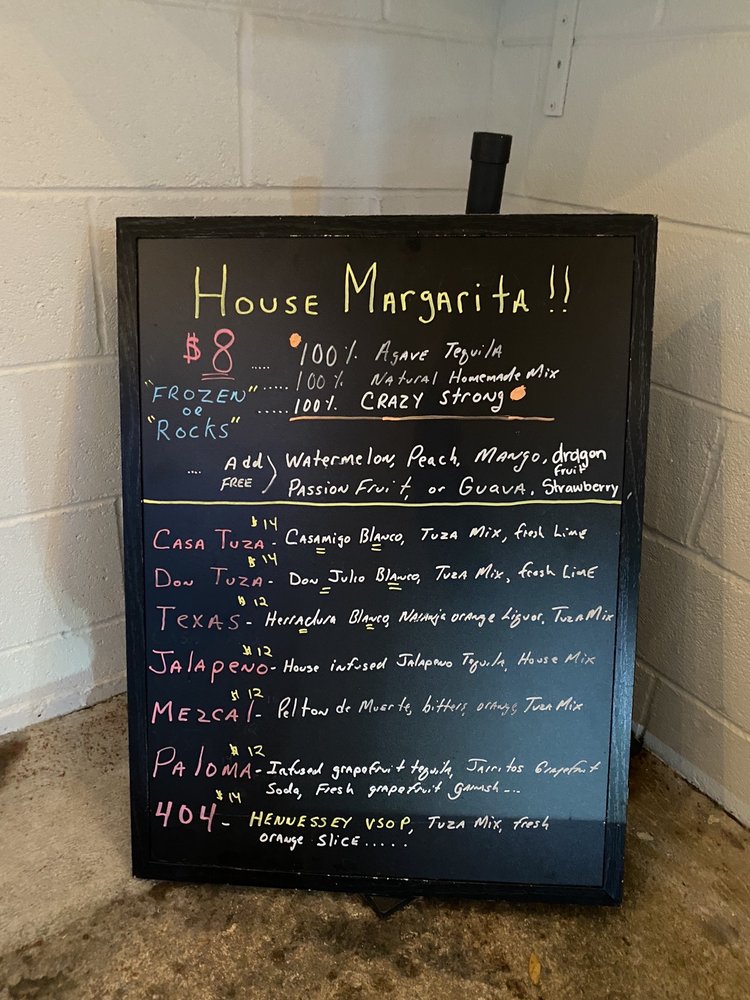 House Margarita!!
$8 ..... 100% Agave Tequila
"Frozen" ..... 100% Natural Homemade Mix
or
"Rocks" ..... 100% CRAZY Strong
.... Add FREE Watermelon, Peach, Mango, dragon fruit
Passion Fruit, or Guava, Strawberry
$14
Casa Tuza - Casamigo Blanco, Tuza Mix, fresh Lime
$14
Don Tuza - Don Julio Blanco, Tuza Mix, fresh Lime
$12
Texas - Herradura Blanco, Naranja orange Liquor, Tuza Mix
$12
Jalapeno - House infused Jalapeno Tequila, House Mix
$12
Mezcal - Pelton de Muerte, bitters, orange, Tuza Mix
$12
Paloma - Infused grapefruit tequila, Jarritos Grapefruit
Soda, Fresh grapefruit Garnish...
$14
404 - HENNESSEY VSOP, Tuza Mix, fresh
orange Slice.....